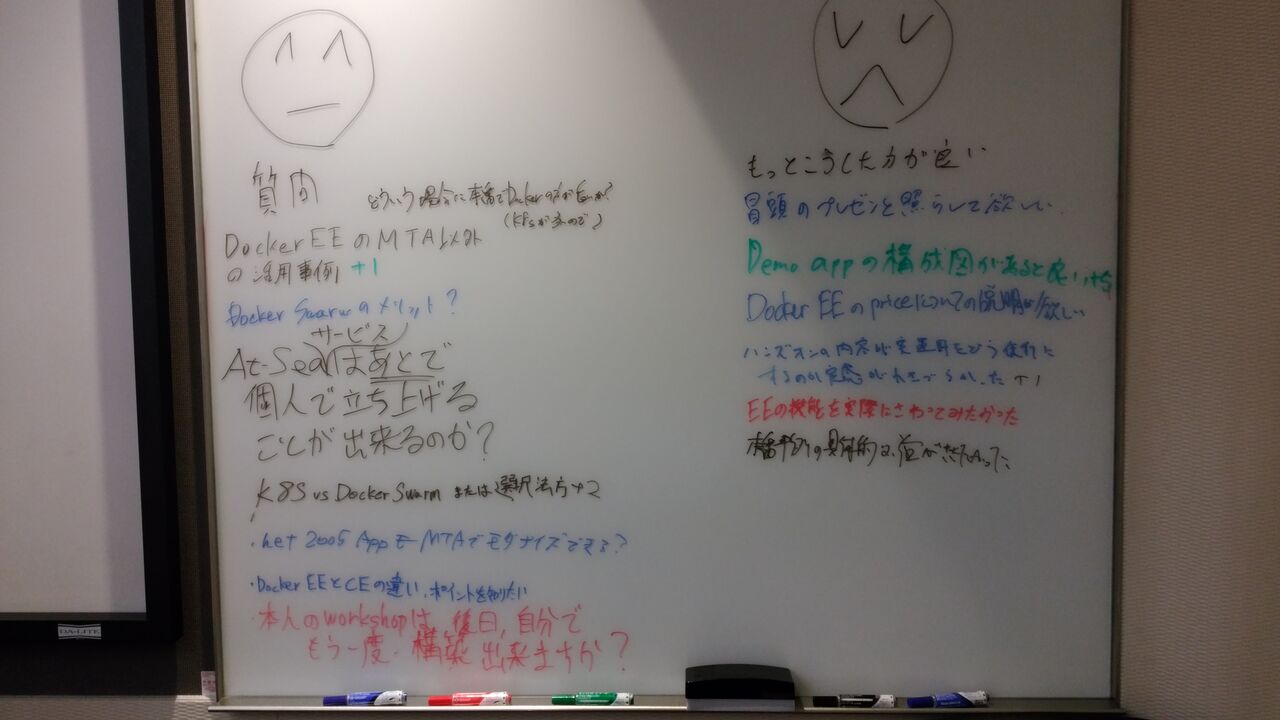 質問
どういう場合に本番でDockerの方が良いか?
(K8sが多いので)
Docker EEのMTA以外
の活用事例 +1
Docker Swarmのメリット?
サービス
At-Seaはあとで
個人で立ち上げる
ことが出来るのか?
K8S vs Docker Swarm または選択法方 +2
.net 2005 AppをMTAでモダナイズできる?
・Docker EEとCEの違い、ポイントを知りたい
・本人のworkshopは、後日、自分で
もう一度、構築出来ますか?
DA-LITE
もっとこうした方が良い
冒頭のプレゼンを照らして欲しい
Demo appの構成図があると良い +5
Docker EEのpriceについての説明が欲しい
ハンズオンの内容が実運用をどう
+1
EEの機能を実際にさわってみたかった
の具体的な